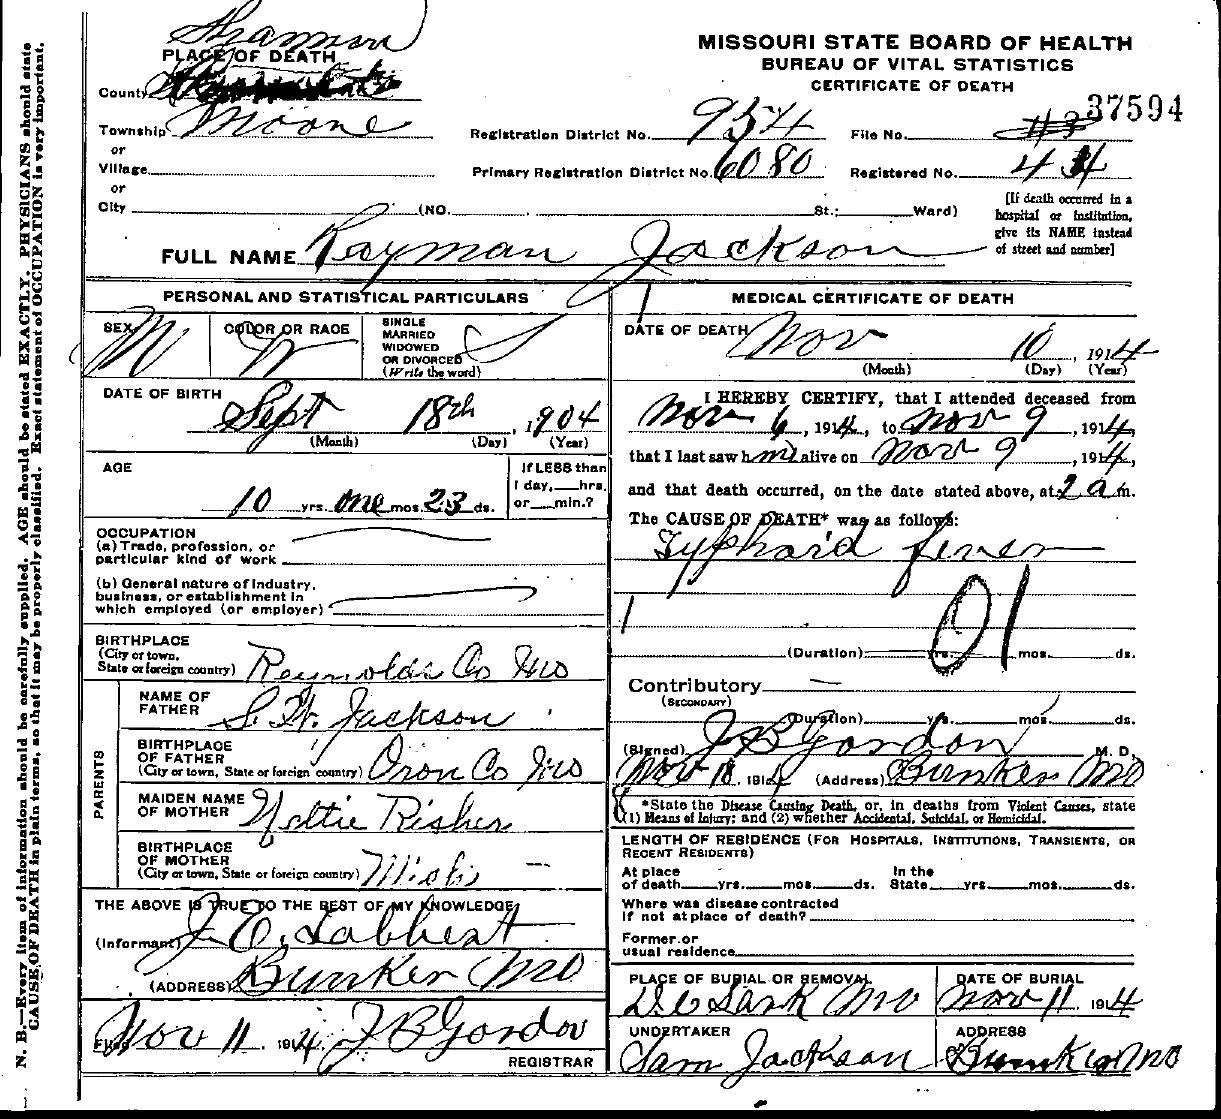 Shannon
MISSOURI STATE BOARD OF HEALTH
BUREAU OF VITAL STATISTICS
CERTIFICATE OF DEATH
PLACE OF DEATH
County
37594
Township Moore
Registration District No. 954 File No. #3
or
Village
Primary Registration District No. 6080 Registered No. 4
or
City (NO. St.; Ward)
[If death occurred in a
hospital or institution,
give its NAME instead
of street and number]
FULL NAME Rayman Jackson
PERSONAL AND STATISTICAL PARTICULARS
SEX M
COLOR OR RACE W
SINGLE
MARRIED
WIDOWED
OR DIVORCED S
(Write the word)
DATE OF BIRTH
Sept 18th, 1904
(Month) (Day) (Year)
AGE
10 yrs. one mos. 23 ds.
If LESS than
1 day, hrs.
or min.?
OCCUPATION
(a) Trade, profession, or
particular kind of work
(b) General nature of Industry,
business, or establishment in
which employed (or employer)
BIRTHPLACE
(City or town,
State or foreign country) Reynolds Co Mo
PARENTS
NAME OF
FATHER S. W. Jackson
BIRTHPLACE
OF FATHER
(City or town, State or foreign country) Iron Co Mo
MAIDEN NAME
OF MOTHER Risher
BIRTHPLACE
OF MOTHER
(City or town, State or foreign country) Mich
THE ABOVE IS TRUE TO THE BEST OF MY KNOWLEDGE
(Informant) J. E.
(ADDRESS) Bunker Mo
Filed Nov 11, 1914 J B Gordon
REGISTRAR
MEDICAL CERTIFICATE OF DEATH
1
DATE OF DEATH Nov 10, 1914
(Month) (Day) (Year)
I HEREBY CERTIFY, that I attended deceased from
Nov 6, 1914, to Nov 9, 1914,
that I last saw him alive on Nov 9, 1914,
and that death occurred, on the date stated above, at 2 a m.
The CAUSE OF DEATH* was as follows:
Typhoid fever
1 01
(Duration) yrs. mos. ds.
Contributory
(SECONDARY)
(Duration) yrs. mos. ds.
(Signed) J B Gordon M. D.
Nov 10, 1914 (Address) Bunker Mo
*State the Disease Causing Death, or, in deaths from Violent Causes, state
(1) Means of Injury; and (2) whether Accidental, Suicidal, or Homicidal.
LENGTH OF RESIDENCE (FOR HOSPITALS, INSTITUTIONS, TRANSIENTS, OR
RECENT RESIDENTS)
At place In the
of death yrs. mos. ds. State yrs. mos. ds.
Where was disease contracted
If not at place of death?
Former or
usual residence
PLACE OF BURIAL OR REMOVAL
Mo
DATE OF BURIAL
Nov 11 1914
UNDERTAKER
Sam Jackson
ADDRESS
Bunker Mo
N. B.—Every item of information should be carefully supplied. AGE should be stated EXACTLY. PHYSICIANS should state
CAUSE OF DEATH in plain terms, so that it may be properly classified. Exact statement of OCCUPATION is very important.